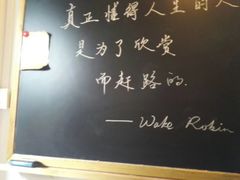 真正懂得人生的人
是为了欣赏
而赶路的.
—— Wake Robin